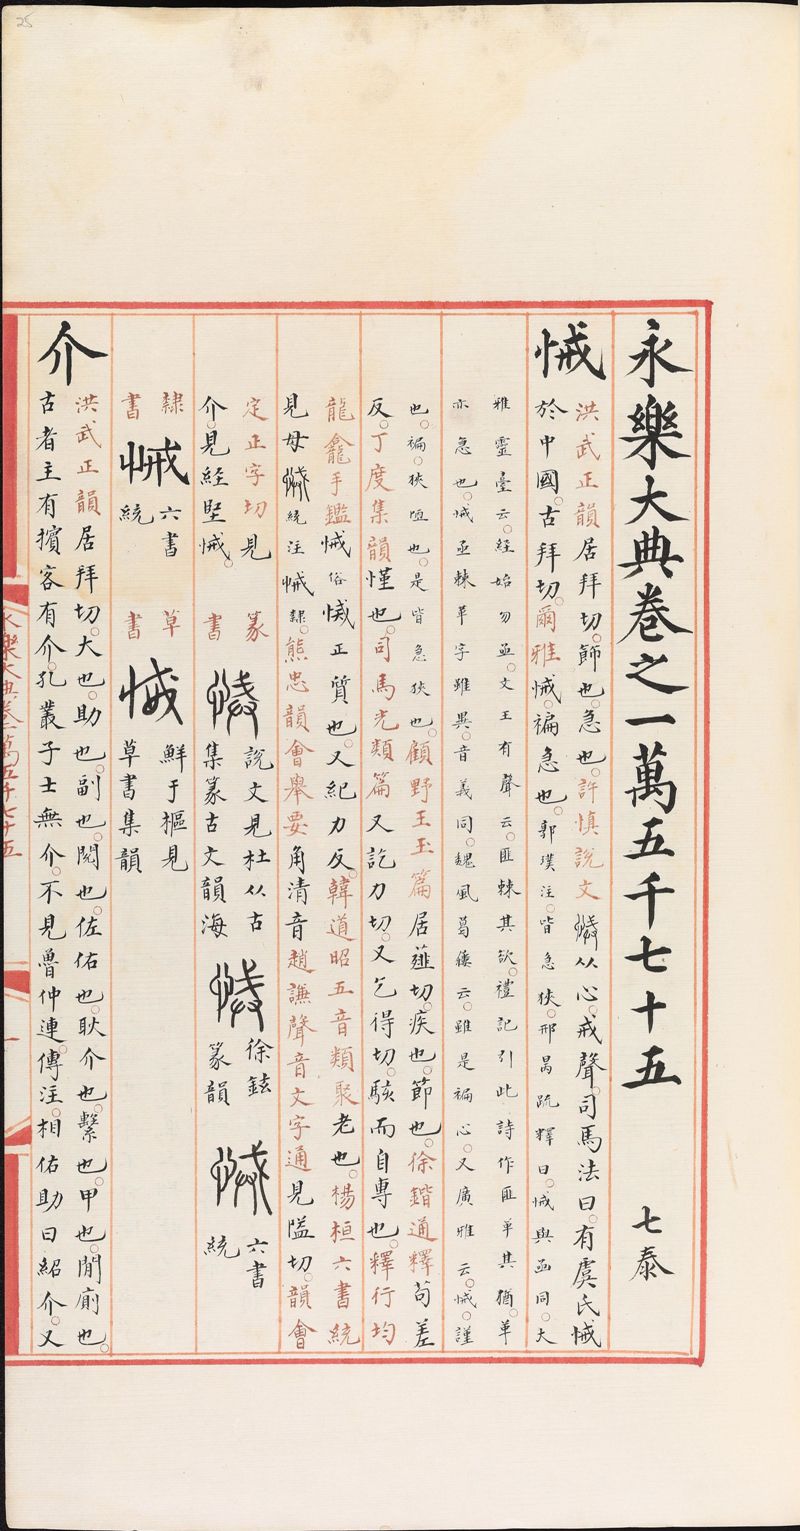 永樂大典卷之一萬五千七十五 七泰
悈
洪武正韻居拜切。飾也。急也。許慎說文悈从心。戒聲。司馬法曰。有虞氏悈
於中國。古拜切。爾雅悈。褊急也。郭璞注。皆急狹。邢昺疏釋曰。悈與亟同。大
雅靈臺云。經始勿亟。文王有聲云。匪棘其欲。禮記引此詩作匪革其猶。革
亦急也。悈亟棘革字雖異。音義同。魏風葛屨云。雖是褊心。又廣雅云。悈。謹
也。褊。狹陋也。是皆急狹也。顧野王玉篇居薤切。疾也。飾也。徐鍇通釋苟差
反。丁度集韻慬也。司馬光類篇又訖力切。又乞得切。駭而自專也。釋行均
龍龕手鑑悈俗悈正質也。又紀力反。韓道昭五音類聚老也。楊桓六書統
見母悈統注悈隸。熊忠韻會舉要角清音趙謙聲音文字通見隘切。韻會
定正字切見
介。見經堅悈。
篆書
悈
說文見杜从古
集篆古文韻海
悈
徐鉉
篆韻
悈
六書
統
隸書
悈
六書
統
草書
悈
鮮于樞見
草書集韻
介
洪武正韻居拜切。大也。助也。副也。閱也。佐佑也。耿介也。繫也。甲也。閒廁也。
古者主有擯客有介。孔叢子士無介。不見魯仲連。傳注。相佑助曰紹介。又
永樂大典卷一萬五千七十五
一
25